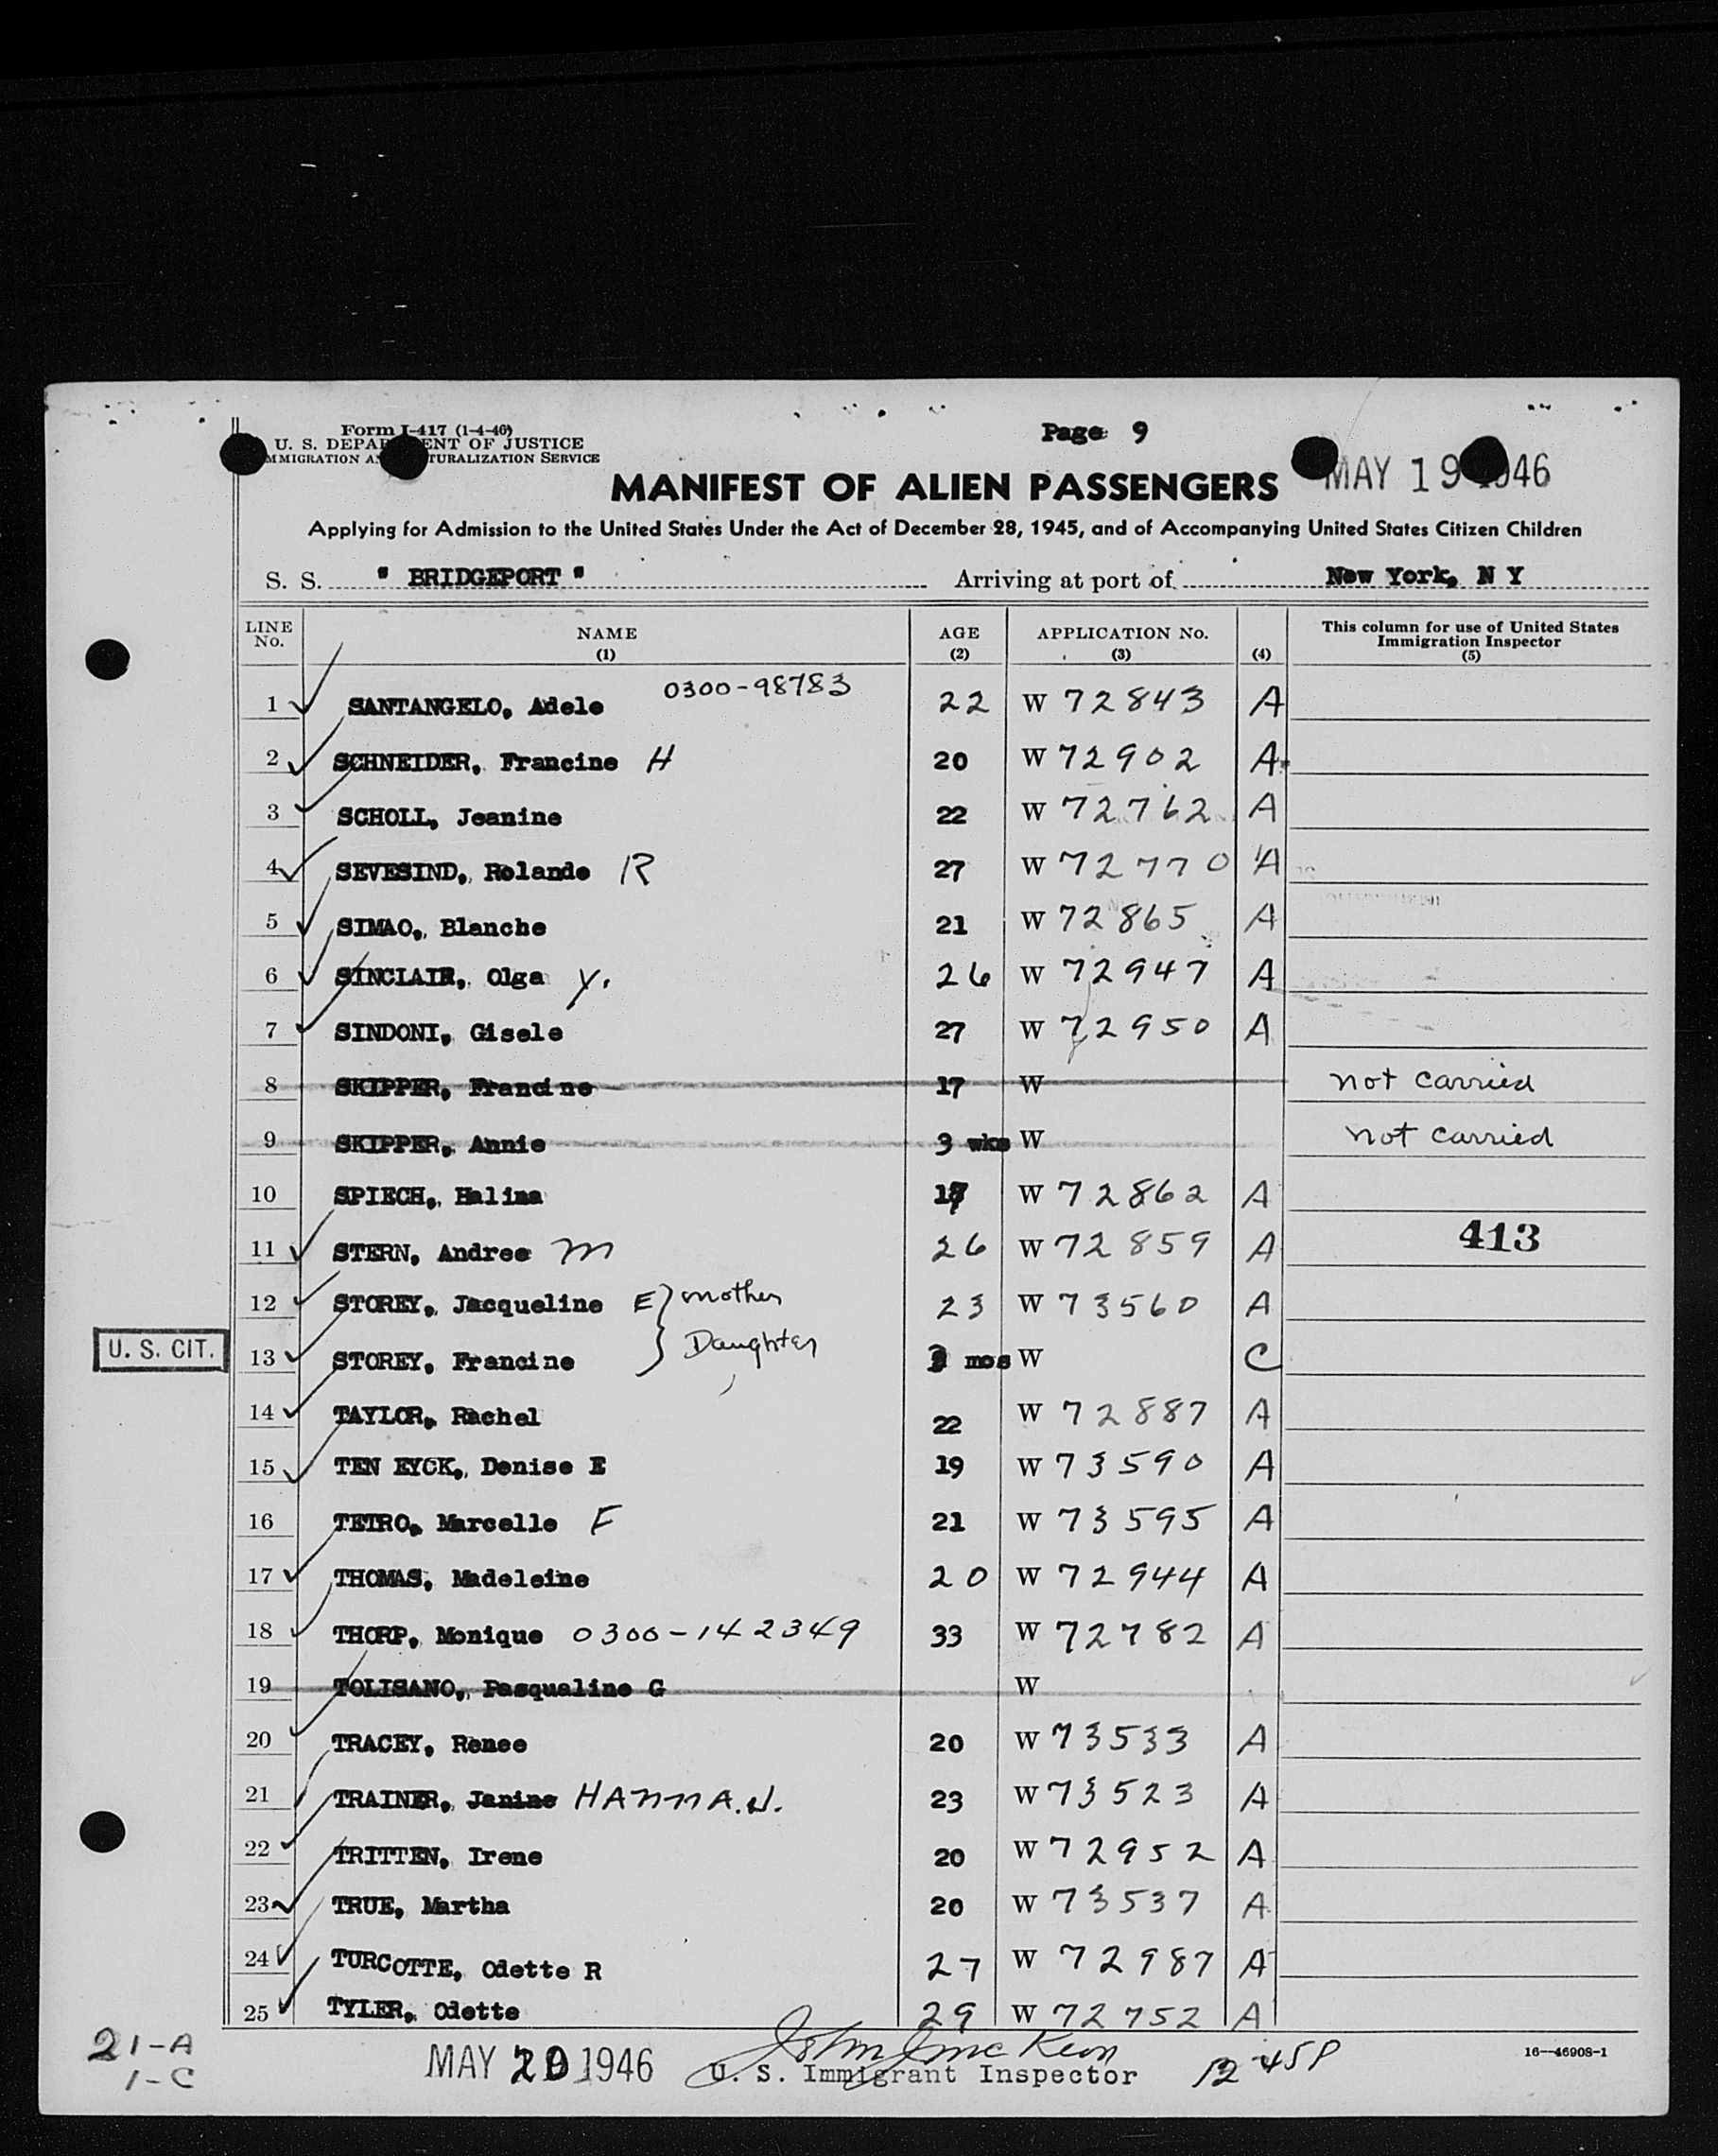 Form I-417 (1-4-46)
Page 9
U. S. DEPARTMENT OF JUSTICE
IMMIGRATION AND NATURALIZATION SERVICE
MAY 19 1946
MANIFEST OF ALIEN PASSENGERS
Applying for Admission to the United States Under the Act of December 28, 1945, and of Accompanying United States Citizen Children
S. S. " BRIDGEPORT " Arriving at port of New York, N Y
LINE No. NAME (1) AGE (2) APPLICATION No. (3) (4) This column for use of United States Immigration Inspector (5)
1 SANTANGELO, Adele 0300-98783 22 W 72843 A
2 SCHNEIDER, Francine H 20 W 72902 A
3 SCHOLL, Jeanine 22 W 72762 A
4 SEVESIND, Rolande R 27 W 72770 A
5 SIMAO, Blanche 21 W 72865 A
6 SINCLAIR, Olga Y. 26 W 72947 A
7 SINDONI, Gisele 27 W 72950 A
8 SKIPPER, Francine 17 W not carried
9 SKIPPER, Annie 3 wks W not carried
10 SPIECH, Halina W 72862 A
11 STERN, Andree M 26 W 72859 A 413
12 STOREY, Jacqueline E } mother 23 W 73560 A
U. S. CIT. 13 STOREY, Francine } Daughter mos W C
14 TAYLOR, Rachel 22 W 72887 A
15 TEN EYCK, Denise E 19 W 73590 A
16 TETRO, Marcelle F 21 W 73595 A
17 THOMAS, Madeleine 20 W 72944 A
18 THORP, Monique 0300-142349 33 W 72782 A
19 TOLISANO, Pasqualine G W
20 TRACEY, Renee 20 W 73533 A
21 TRAINER, Janine HAnnA.J. 23 W 73523 A
22 TRITTEN, Irene 20 W 72952 A
23 TRUE, Martha 20 W 73537 A
24 TURCOTTE, Odette R 27 W 72987 A
25 TYLER, Odette 29 W 72752 A
21-A
1-C
MAY 20 1946
John J mc Keon
U. S. Immigrant Inspector
12 45P
16—46908-1